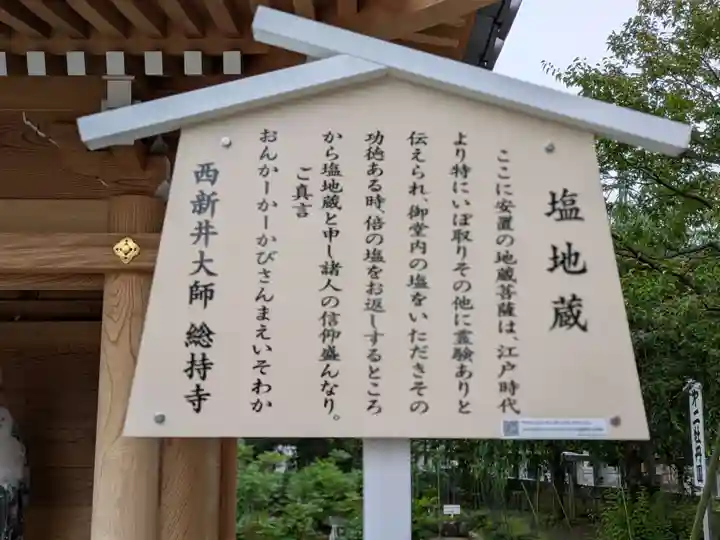 塩地蔵
ここに安置の地蔵菩薩は、江戸時代
より特にいぼ取りその他に霊験ありと
伝えられ、御堂内の塩をいただきその
功徳ある時、倍の塩をお返しするところ
から塩地蔵と申し諸人の信仰盛んなり。
ご真言
おんかーかーかびさんまえいそわか
西新井大師 総持寺